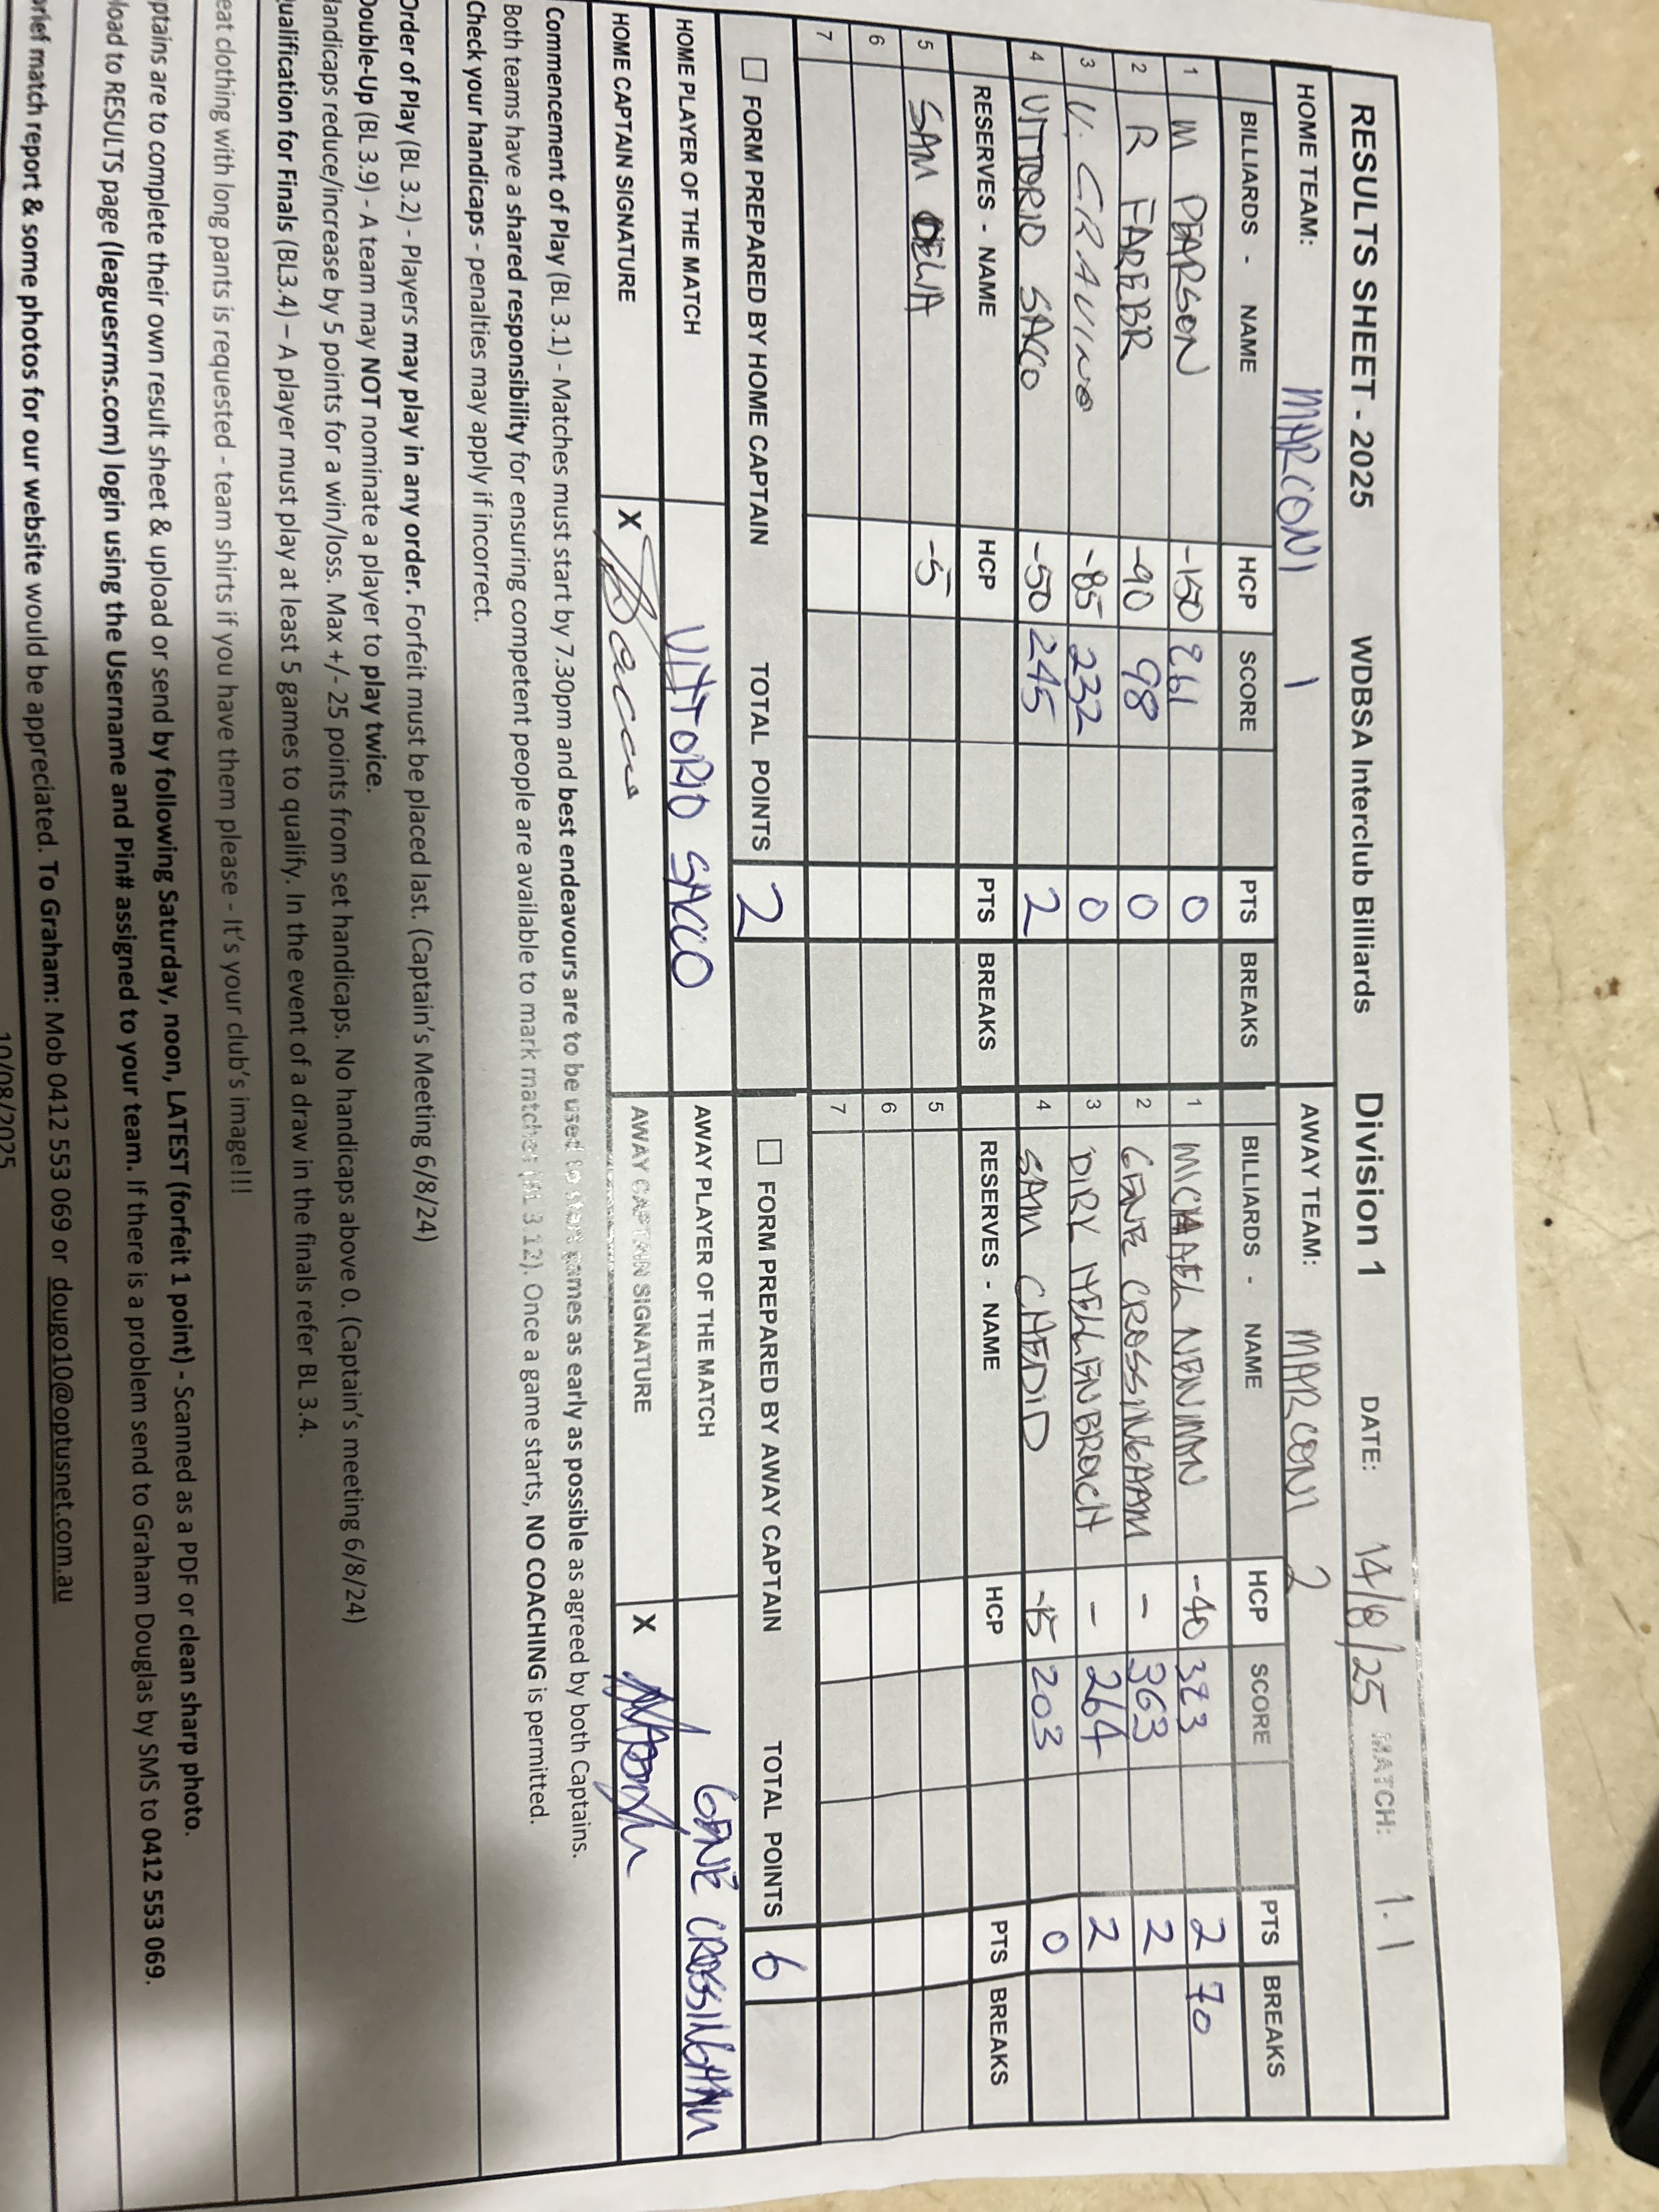 RESULTS SHEET - 2025 WDBSA Interclub Billiards Division 1 DATE: 14/8/25 MATCH: 1.1
HOME TEAM: MARCONI 1 AWAY TEAM: MARCONI 2
BILLIARDS - NAME HCP SCORE PTS BREAKS BILLIARDS - NAME HCP SCORE PTS BREAKS
1 M PEARSON -150 261 0 1 MICHAEL NEWMAN -40 323 2 70
2 R FAREBR -90 98 0 2 GENE CROSSINGHAM - 363 2
3 V. CRAVINO -85 232 0 3 DIRY HELLENBROICH - 264 2
4 VITTORIO SACCO -50 245 2 4 SAM CHEDID -15 203 0
RESERVES - NAME HCP PTS BREAKS RESERVES - NAME HCP PTS BREAKS
5 SAM DELIA -5 5
6 6
7 7
FORM PREPARED BY HOME CAPTAIN TOTAL POINTS 2 FORM PREPARED BY AWAY CAPTAIN TOTAL POINTS 6
HOME PLAYER OF THE MATCH VITTORIO SACCO AWAY PLAYER OF THE MATCH GENE CROSSINGHAM
HOME CAPTAIN SIGNATURE X Sacco AWAY CAPTAIN SIGNATURE X
Commencement of Play (BL 3.1) - Matches must start by 7.30pm and best endeavours are to be used to start games as early as possible as agreed by both Captains.
Both teams have a shared responsibility for ensuring competent people are available to mark matches (BL 3.12). Once a game starts, NO COACHING is permitted.
Check your handicaps - penalties may apply if incorrect.
Order of Play (BL 3.2) - Players may play in any order. Forfeit must be placed last. (Captain's Meeting 6/8/24)
Double-Up (BL 3.9) - A team may NOT nominate a player to play twice.
andicaps reduce/increase by 5 points for a win/loss. Max +/- 25 points from set handicaps. No handicaps above 0. (Captain's meeting 6/8/24)
ualification for Finals (BL3.4) – A player must play at least 5 games to qualify. In the event of a draw in the finals refer BL 3.4.
eat clothing with long pants is requested - team shirts if you have them please - It's your club's image!!!
ptains are to complete their own result sheet & upload or send by following Saturday, noon, LATEST (forfeit 1 point) - Scanned as a PDF or clean sharp photo.
load to RESULTS page (leaguesrms.com) login using the Username and Pin# assigned to your team. If there is a problem send to Graham Douglas by SMS to 0412 553 069.
rief match report & some photos for our website would be appreciated. To Graham: Mob 0412 553 069 or dougo10@optusnet.com.au
10/08/2025